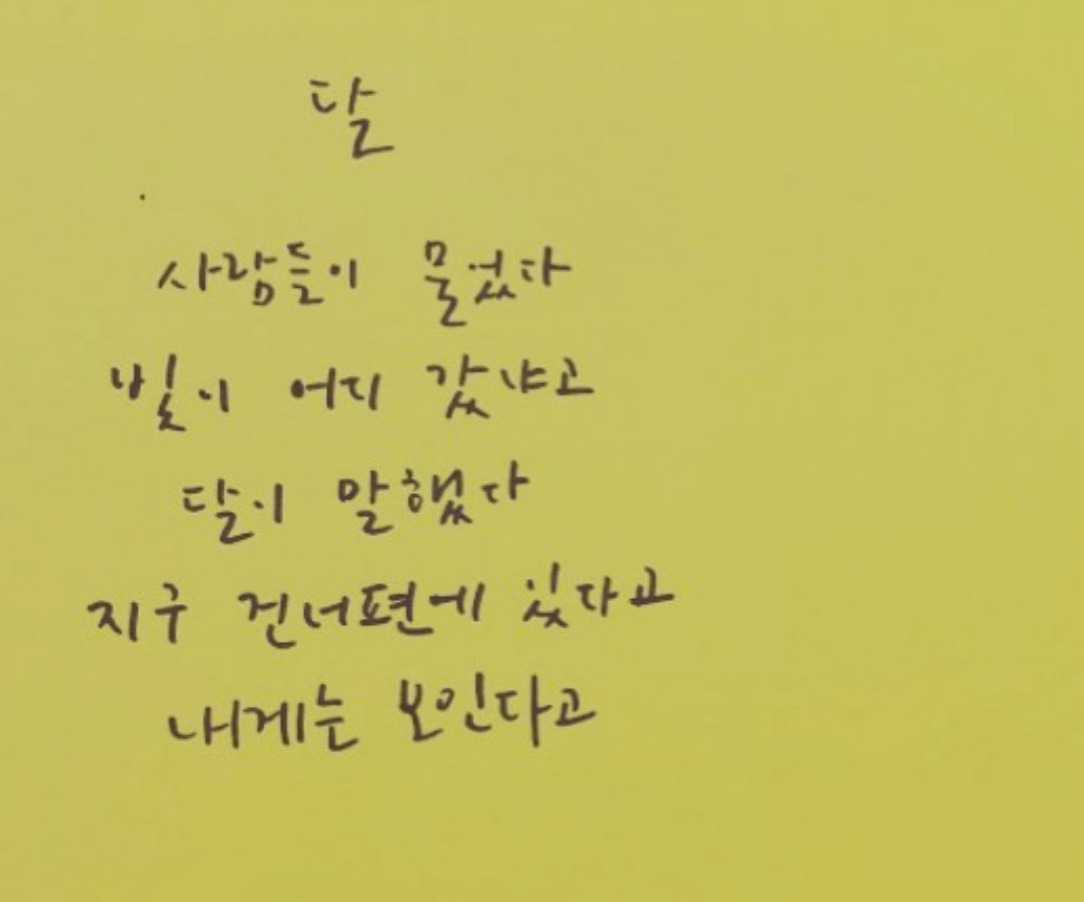 달
사람들이 물었다
빛이 어디 갔냐고
달이 말했다
지구 건너편에 있다고
내게는 보인다고